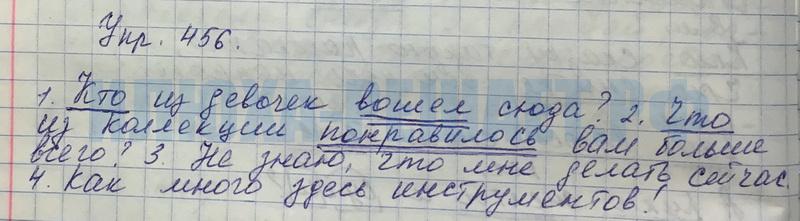 Упр. 456.
1. Кто из девочек вошел сюда? 2. Что
из коллекции понравилось вам больше
всего? 3. Не знаю, что мне делать сейчас.
4. Как много здесь инструментов!